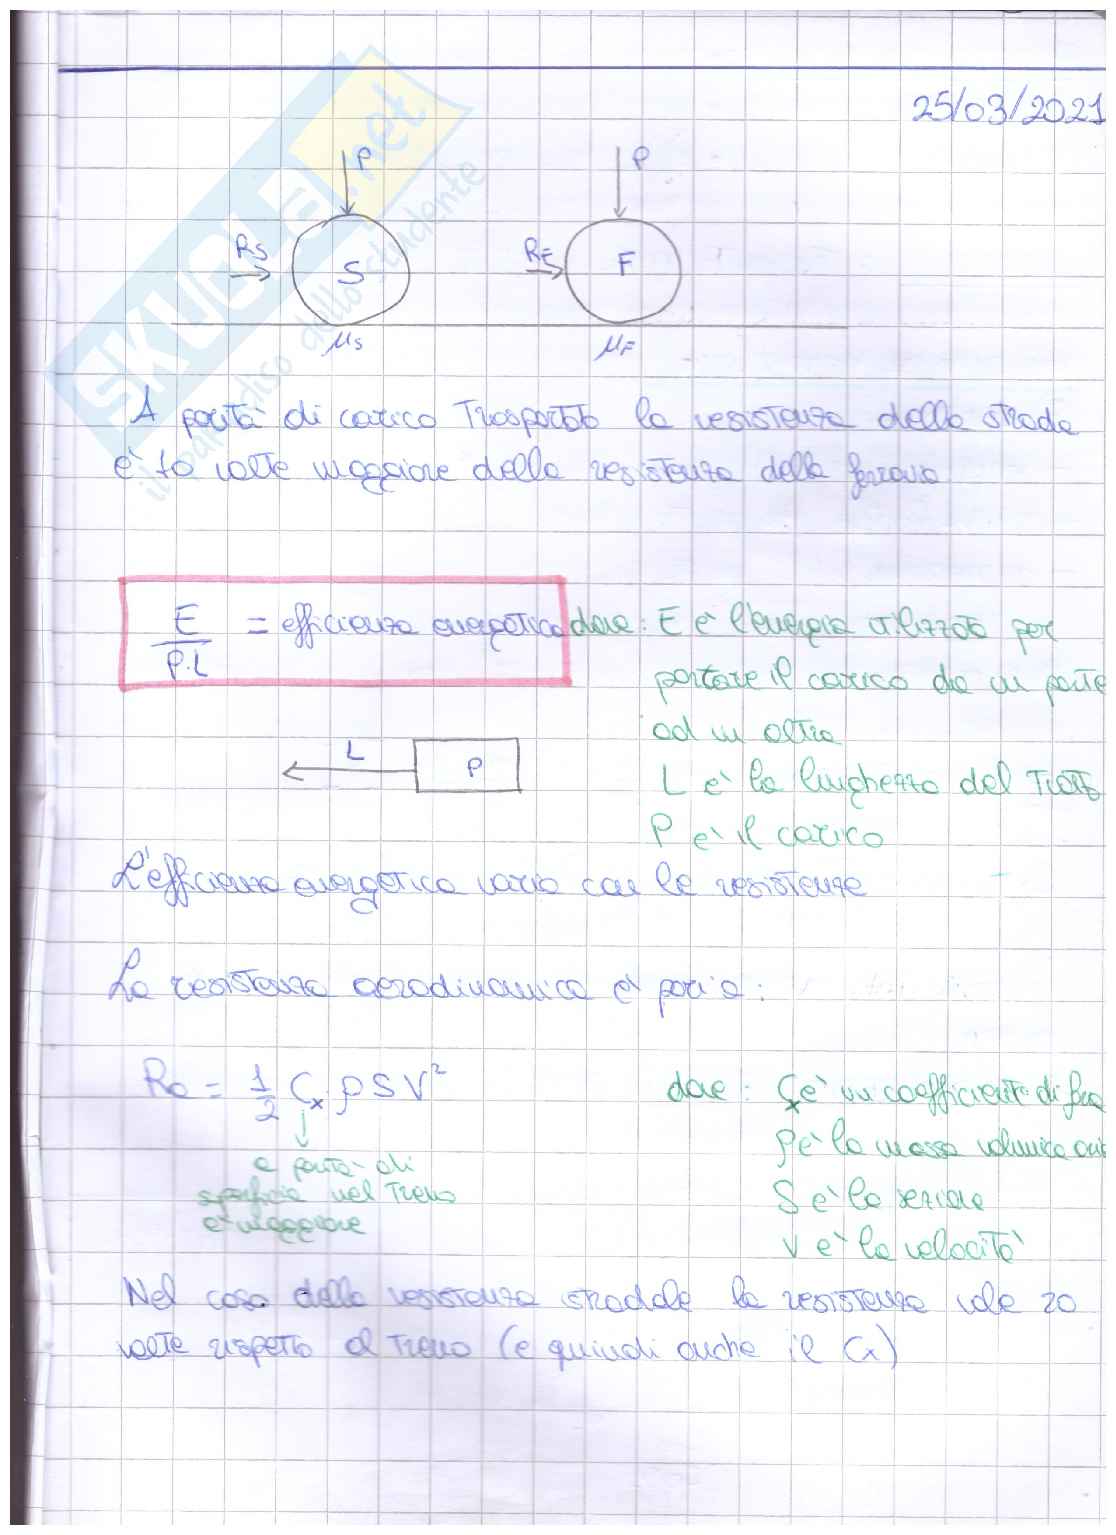 25/03/2021
P
P
RS
S
RF
F
μS
μF
A parità di carico Trasportato la resistenza della strada
è 10 volte maggiore della resistenza della ferrovia
E
P·L
= efficienza energetica
dove: E è l'energia utilizzata per
portare il carico da un parte
ad un altra
L è la lunghezza del Tratto
P è il carico
L
P
L'efficienza energetica varia con le resistenze
La resistenza aerodinamica è pari a:
Ra = 1/2 Cx ρ S V²
a parità di
superficie nel Treno
è maggiore
dove: Cx è un coefficiente di
ρ è la massa volumica
S è la sezione
V è la velocità
Nel caso della resistenza stradale la resistenza vale 20
volte rispetto al Treno (e quindi anche il Cx)
SKUOLA.net
il paradiso dello studente